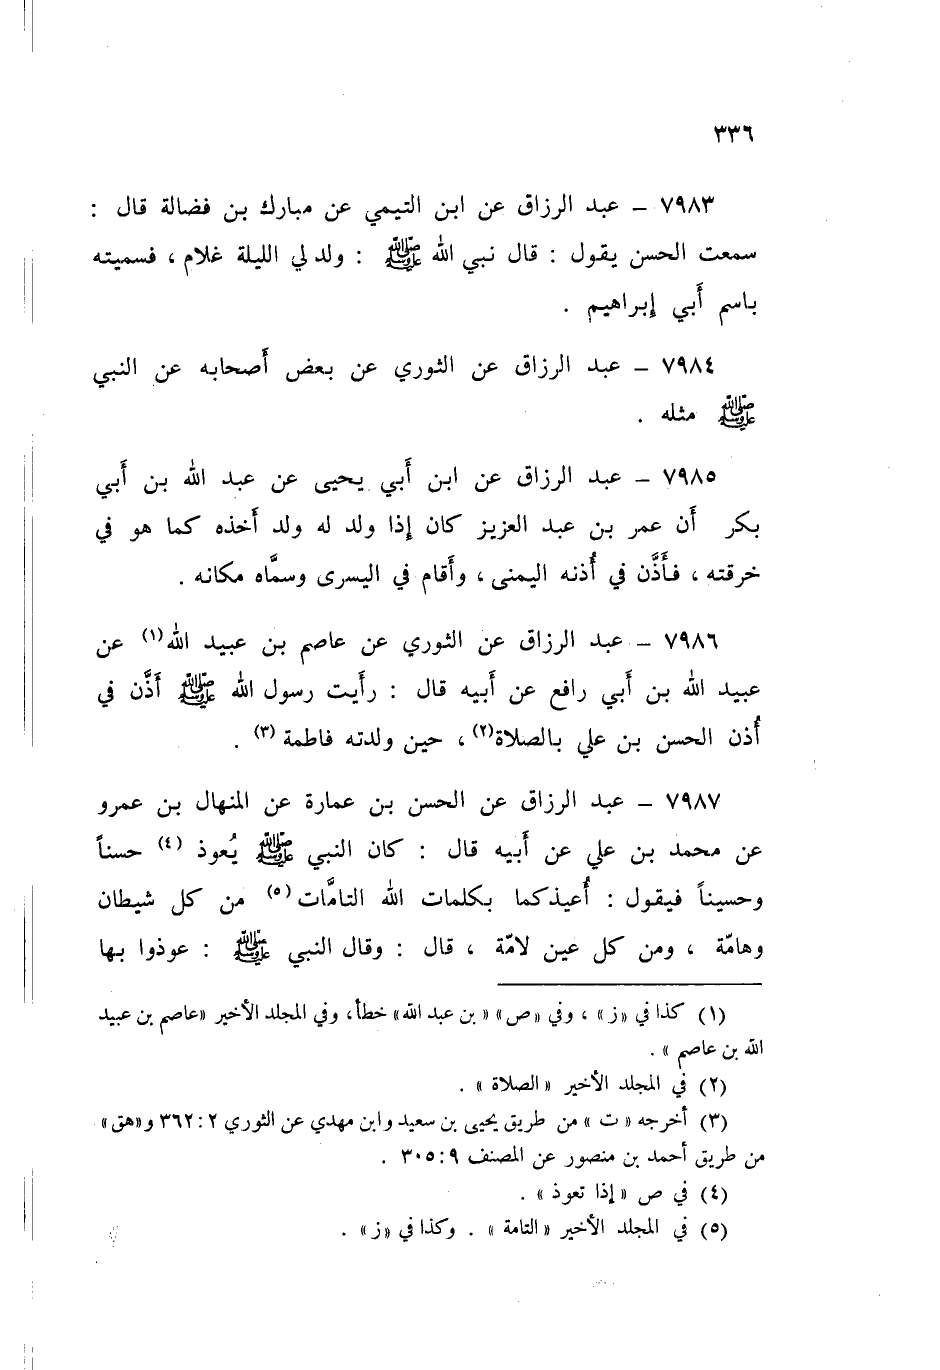 ٣٣٦
٧٩٨٣ – عبد الرزاق عن ابن التيمي عن مبارك بن فضالة قال :
سمعت الحسن يقول : قال نبي الله ﷺ : ولد لي الليلة غلام ، فسميته
باسم أَبي إبراهيم .
٧٩٨٤ – عبد الرزاق عن الثوري عن بعض أَصحابه عن النبي
ﷺ مثله .
٧٩٨٥ – عبد الرزاق عن ابن أَبي يحيى عن عبد الله بن أَبي
بكر أَن عمر بن عبد العزيز كان إذا ولد له ولد أَخذه كما هو في
خرقته ، فأَذَّن في أُذنه اليمنى ، وأَقام في اليسرى وسمَّاه مكانه .
٧٩٨٦ – عبد الرزاق عن الثوري عن عاصم بن عبيد الله(١) عن
عبيد الله بن أَبي رافع عن أَبيه قال : رأَيت رسول الله ﷺ أَذَّن في
أُذن الحسن بن علي بالصلاة(٢) ، حين ولدته فاطمة (٣) .
٧٩٨٧ – عبد الرزاق عن الحسن بن عمارة عن المنهال بن عمرو
عن محمد بن علي عن أَبيه قال : كان النبي ﷺ يُعوذ (٤) حسناً
وحسيناً فيقول : أُعيذكما بكلمات الله التامَّات (٥) من كل شيطان
وهامّة ، ومن كل عين لامّة ، قال : وقال النبي ﷺ : عوذوا بها
(١) كذا في «ز» ، وفي «ص» « بن عبد الله» خطأ، وفي المجلد الأخير «عاصم بن عبيد
الله بن عاصم » .
(٢) في المجلد الأخير « الصلاة » .
(٣) أخرجه « ت » من طريق يحيى بن سعيد وابن مهدي عن الثوري ٢ : ٣٦٢ و«هق»
من طريق أحمد بن منصور عن المصنف ٩ : ٣٠٥ .
(٤) في ص « إذا تعوذ » .
(٥) في المجلد الأخير « التامة » . وكذا في «ز» .